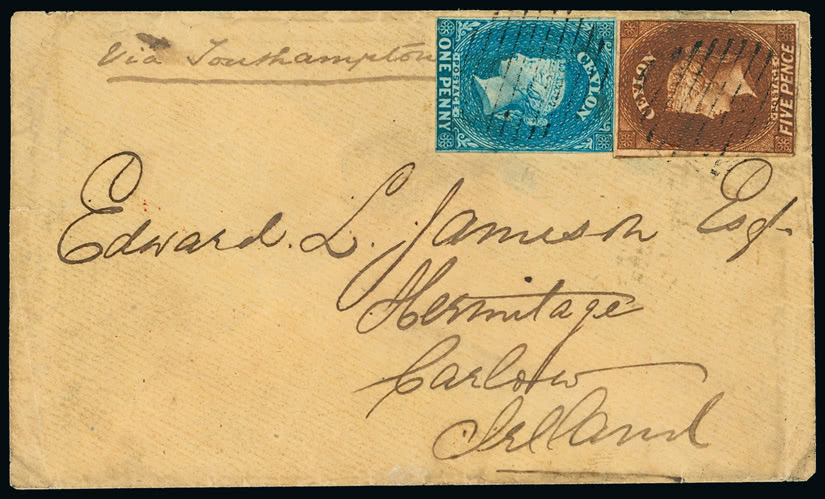 Via Southampton
ONE PENNY
CEYLON
CEYLON
FIVE PENCE
Edward. L. Jameson Esqr
Hermitage
Carlow
Ireland